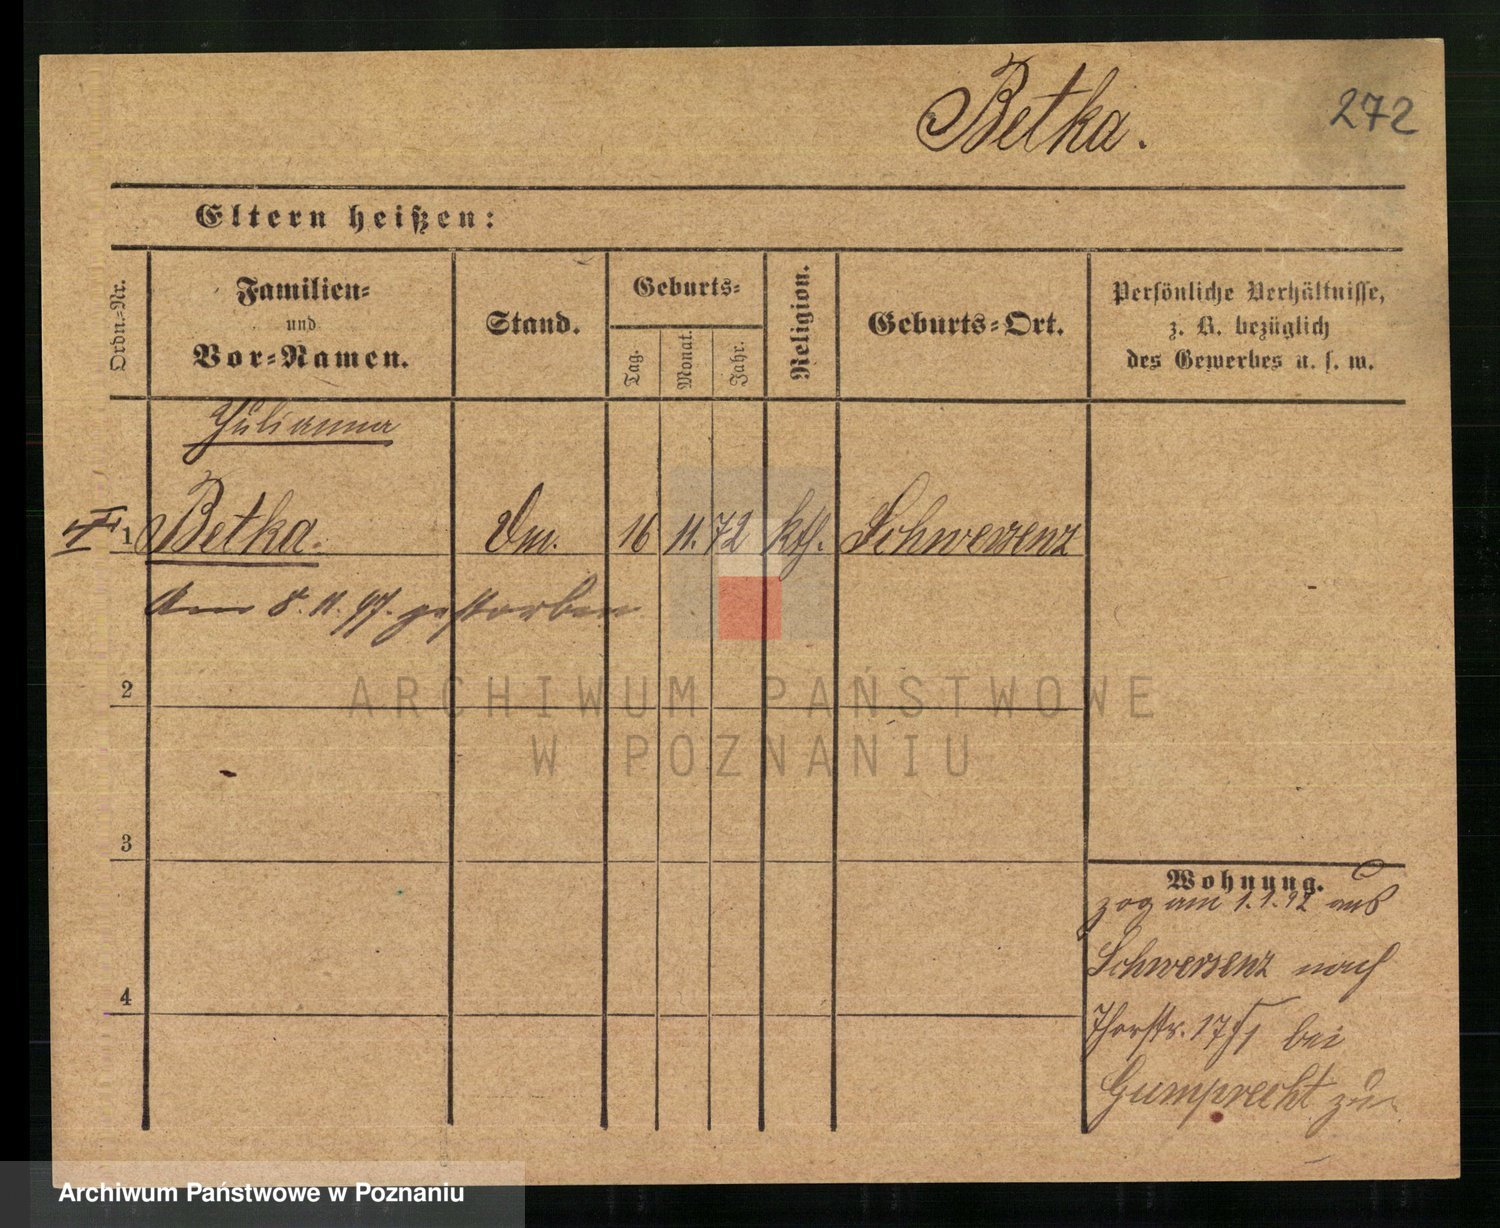 Betka.
272
Eltern heißen:
Ordn.-Nr.
Familien-
und
Vor-Namen.
Stand.
Geburts-
Tag.
Monat.
Jahr.
Religion.
Geburts-Ort.
Persönliche Verhältnisse,
z. B. bezüglich
des Gewerbes u. s. w.
Julianna
1 Betka. 16 11. 72 kth. Schwersenz
Am 8. 11. 97. gestorben
2
ARCHIWUM PAŃSTWOWE
W POZNANIU
3
4
Wohnung.
zog am 1.1.92 aus
Schwersenz nach
Thorstr. 17 bei
Gumprecht zu.
Archiwum Państwowe w Poznaniu